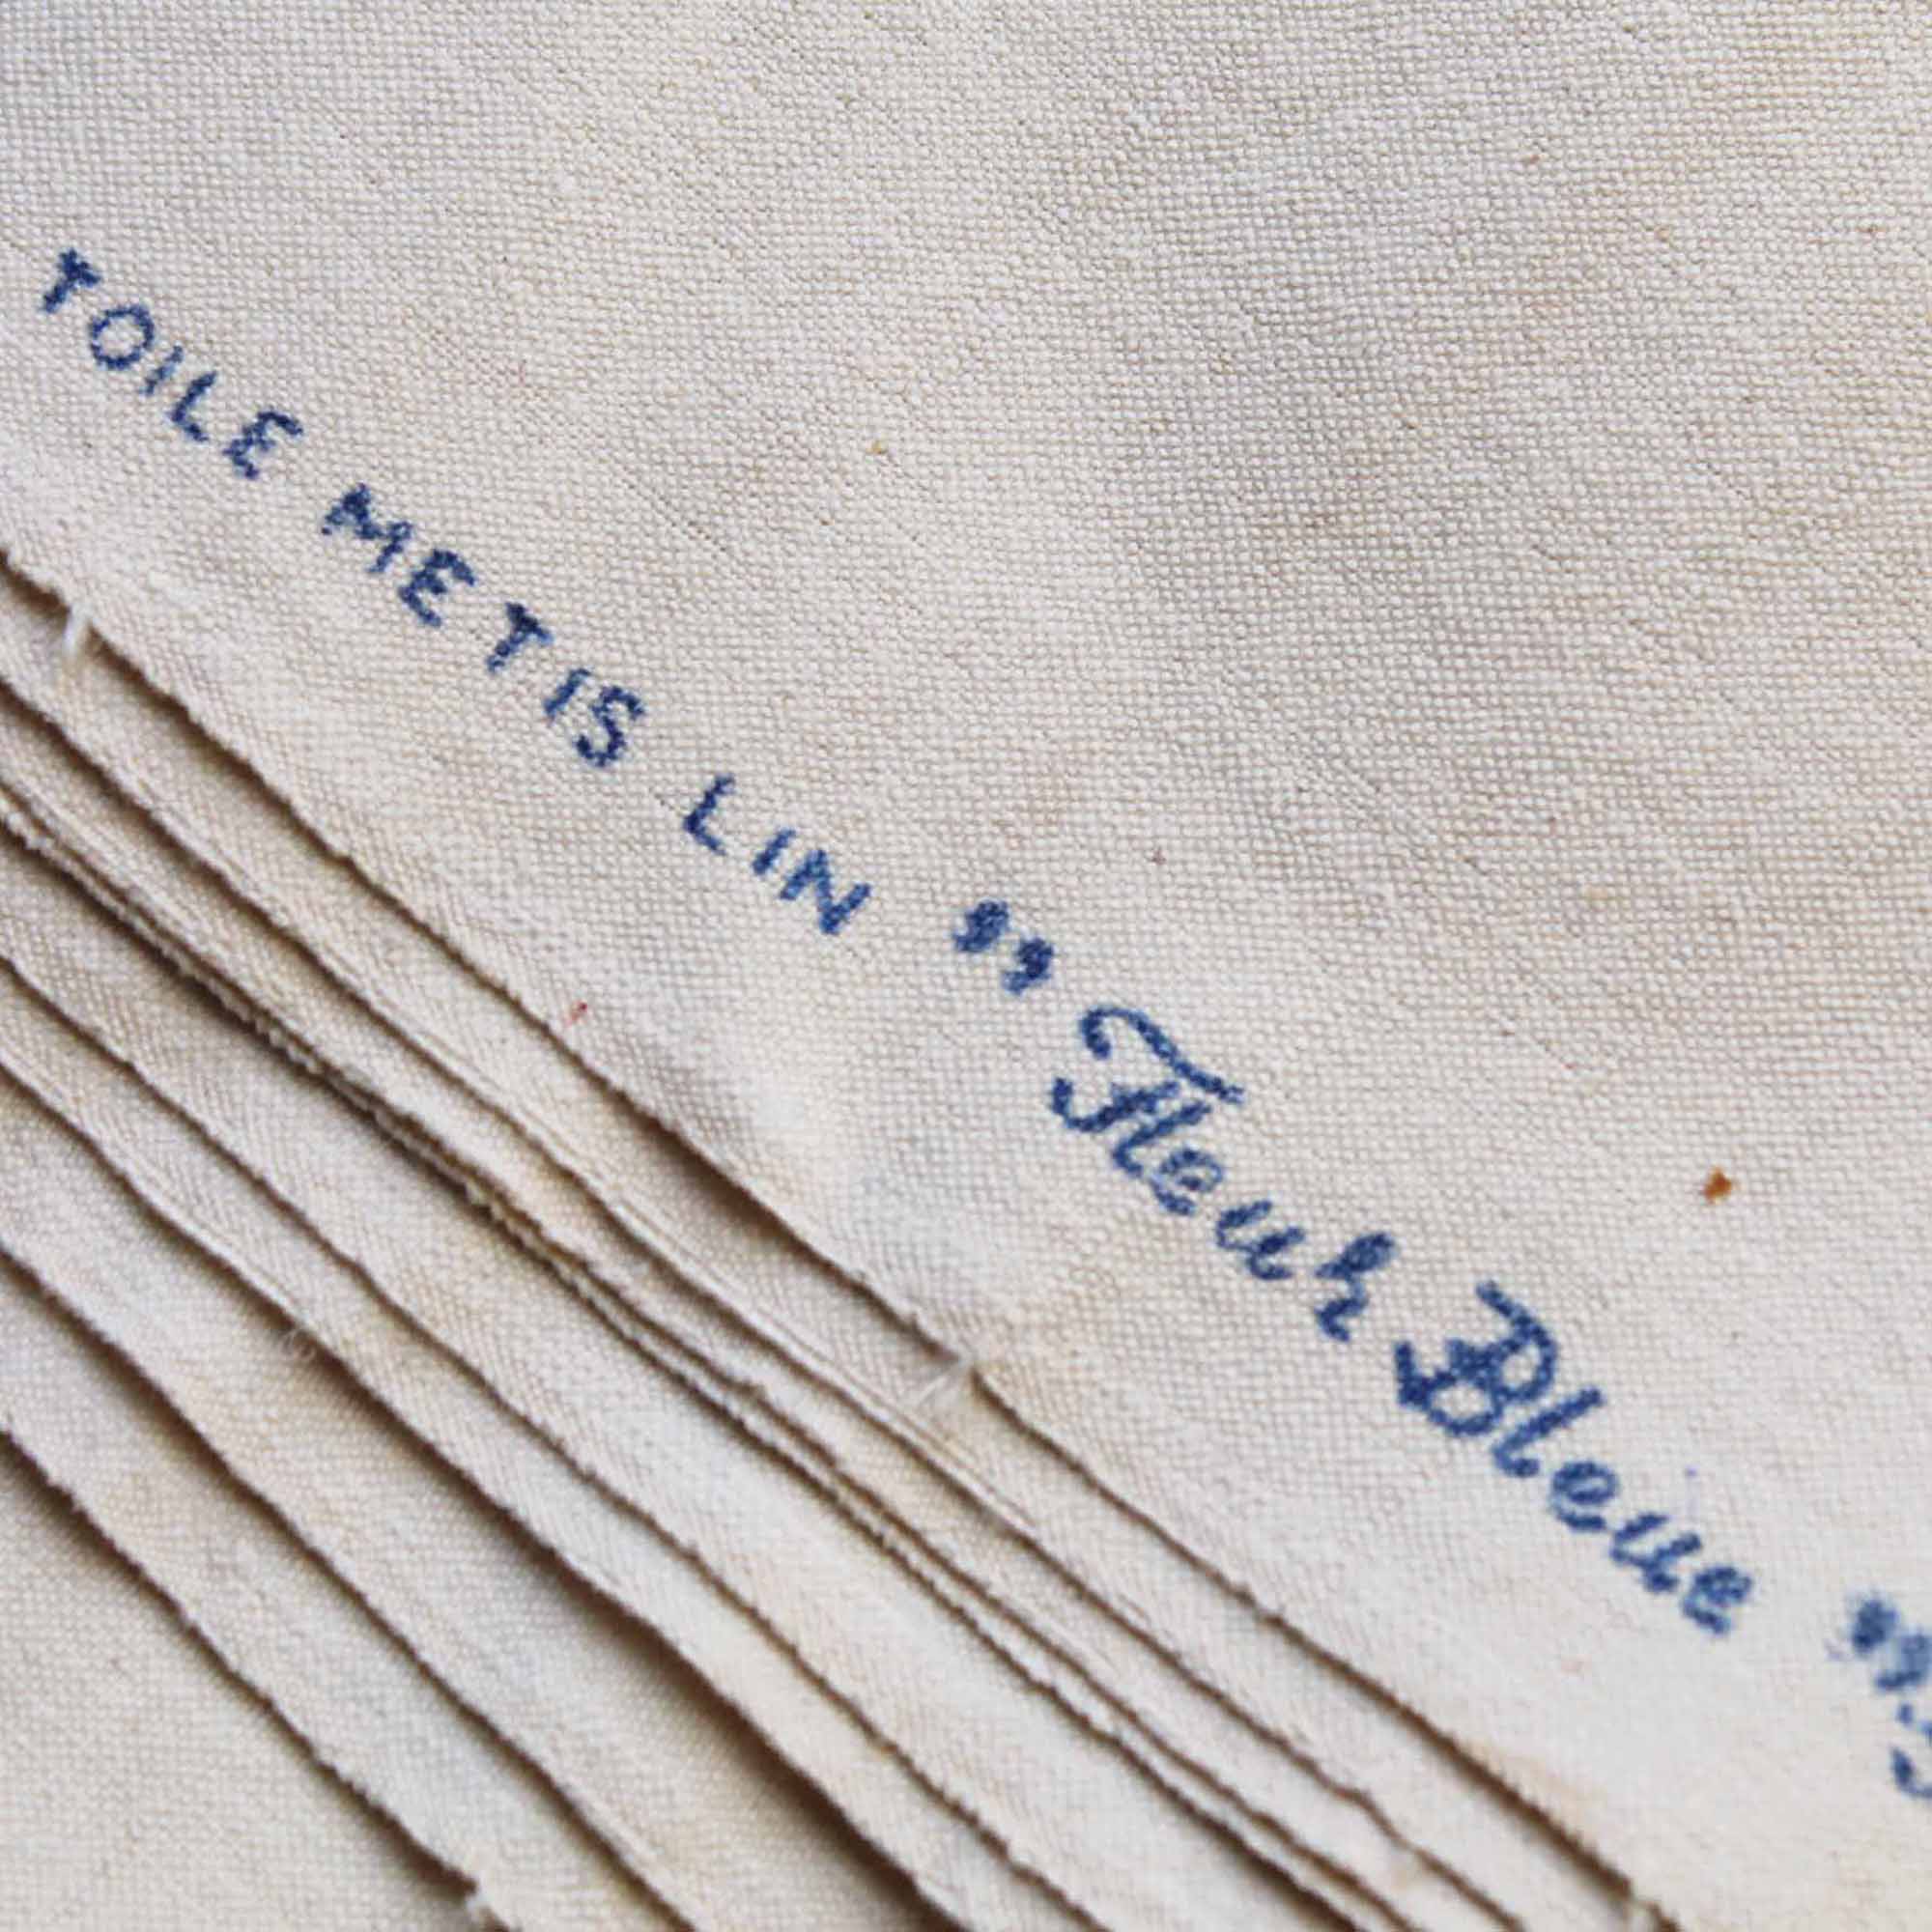 TOILE METIS LIN "Fleur Bleue"